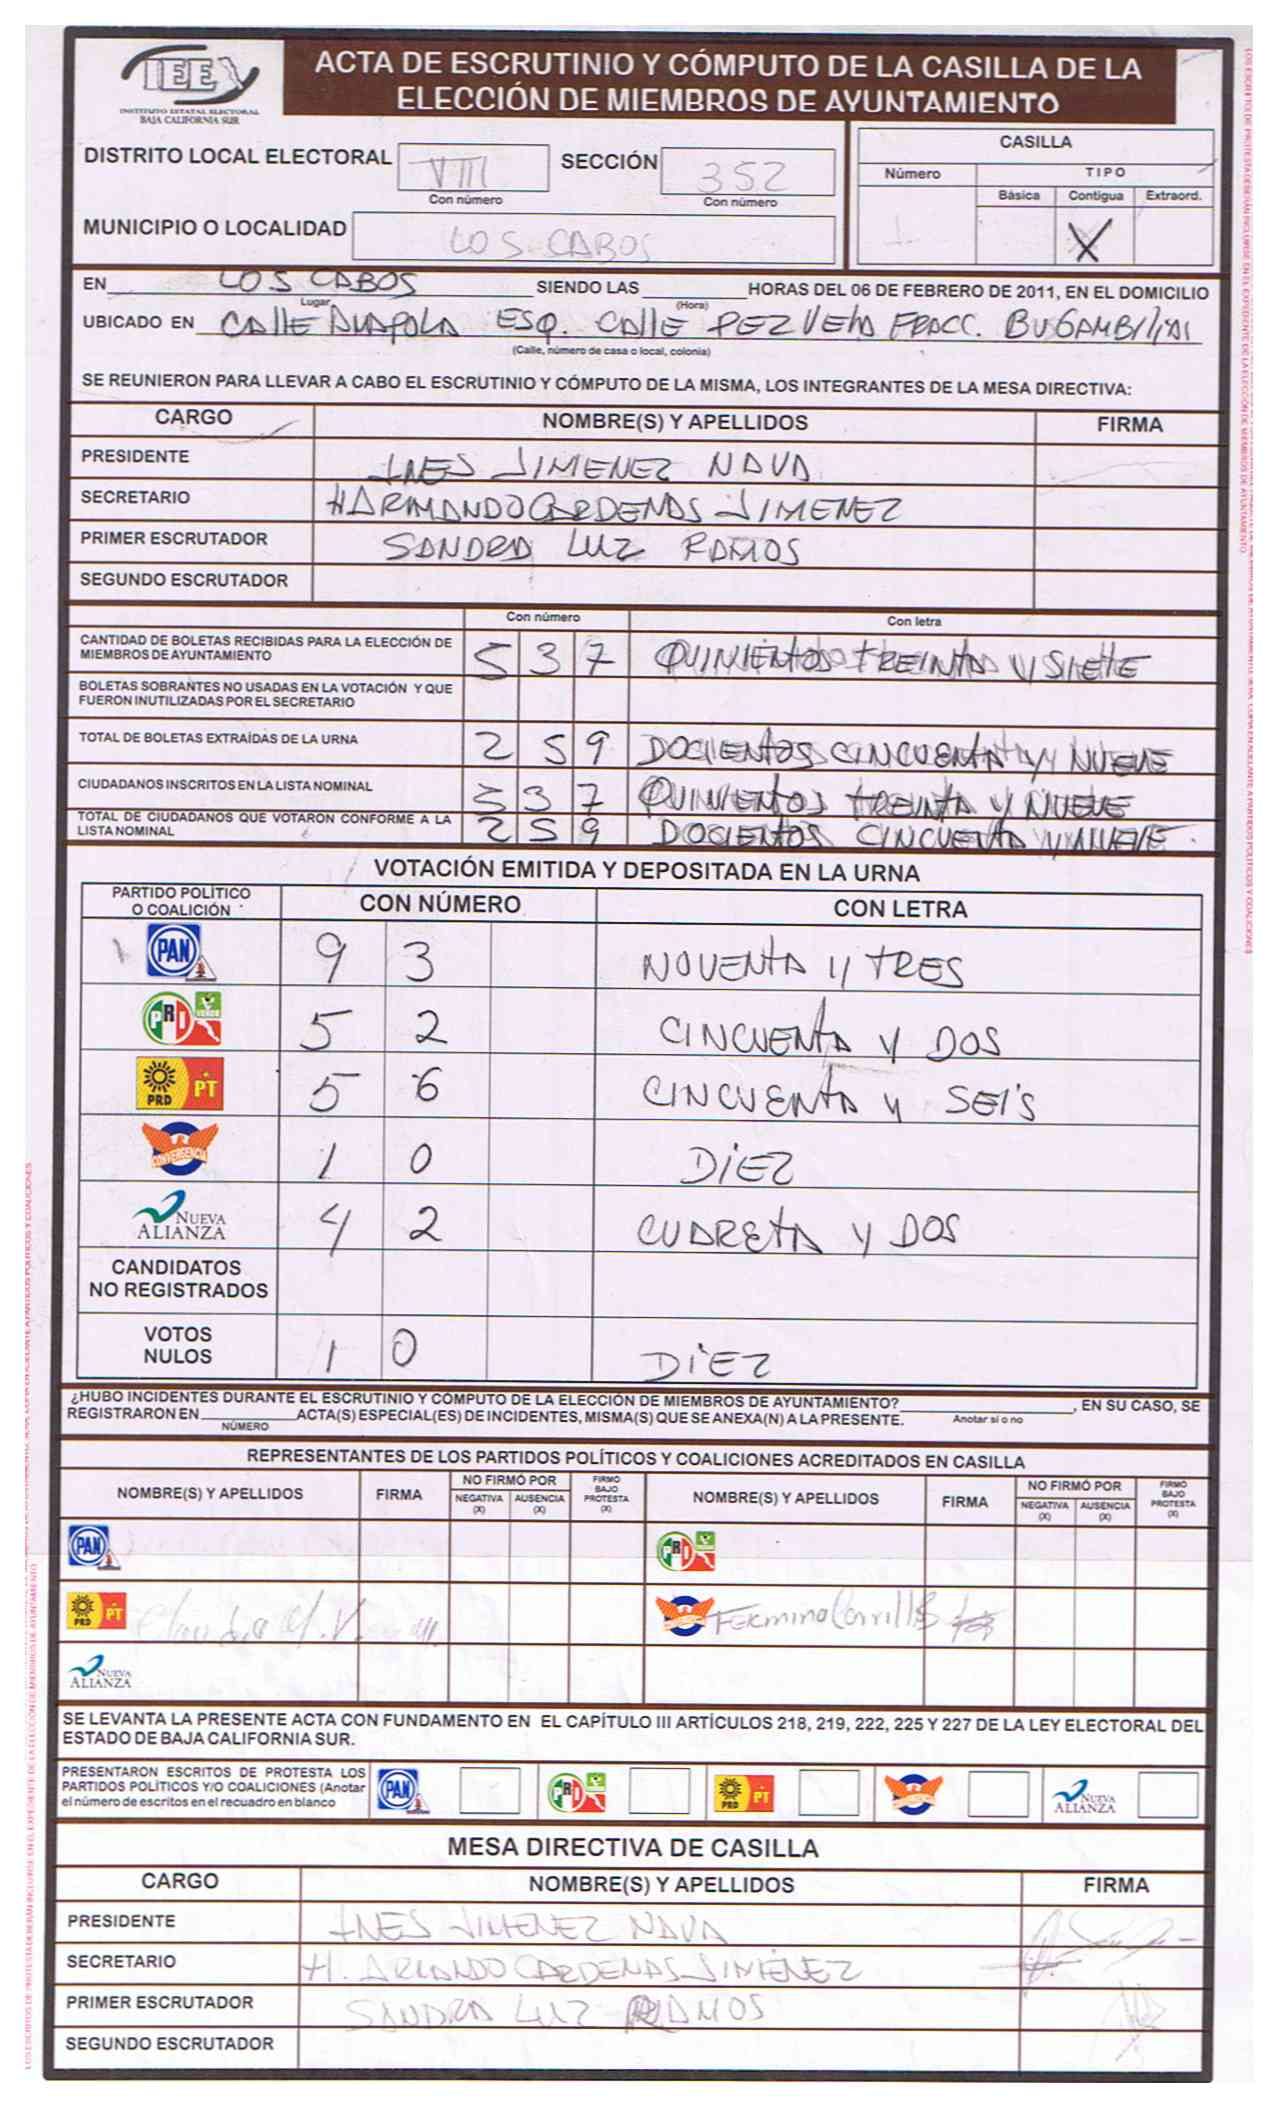 IEE
INSTITUTO ESTATAL ELECTORAL
BAJA CALIFORNIA SUR
ACTA DE ESCRUTINIO Y CÓMPUTO DE LA CASILLA DE LA
ELECCIÓN DE MIEMBROS DE AYUNTAMIENTO
DISTRITO LOCAL ELECTORAL VIII SECCIÓN 352
Con número Con número
MUNICIPIO O LOCALIDAD LOS CABOS
CASILLA
Número TIPO
Básica Contigua Extraord.
1 X
EN LOS CABOS SIENDO LAS HORAS DEL 06 DE FEBRERO DE 2011, EN EL DOMICILIO
Lugar (Hora)
UBICADO EN CALLE AMAPOLA ESQ. CALLE PEZ VELA FRACC. BUGAMBILIAS
(Calle, número de casa o local, colonia)
SE REUNIERON PARA LLEVAR A CABO EL ESCRUTINIO Y CÓMPUTO DE LA MISMA, LOS INTEGRANTES DE LA MESA DIRECTIVA:
CARGO NOMBRE(S) Y APELLIDOS FIRMA
PRESIDENTE INES JIMENEZ NAVA
SECRETARIO H ARMANDO CARDENAS JIMENEZ
PRIMER ESCRUTADOR SANDRA LUZ RAMOS
SEGUNDO ESCRUTADOR
Con número Con letra
CANTIDAD DE BOLETAS RECIBIDAS PARA LA ELECCIÓN DE
MIEMBROS DE AYUNTAMIENTO 5 3 7 QUINIENTOS TREINTA Y SIETTE
BOLETAS SOBRANTES NO USADAS EN LA VOTACIÓN Y QUE
FUERON INUTILIZADAS POR EL SECRETARIO
TOTAL DE BOLETAS EXTRAÍDAS DE LA URNA 2 5 9 DOCIENTOS CINCUENTA Y NUEVE
CIUDADANOS INSCRITOS EN LA LISTA NOMINAL 5 3 7 QUINIENTOS TREINTA Y NUEVE
TOTAL DE CIUDADANOS QUE VOTARON CONFORME A LA
LISTA NOMINAL 2 5 9 DOCIENTOS CINCUENTA Y NUEVE
VOTACIÓN EMITIDA Y DEPOSITADA EN LA URNA
PARTIDO POLÍTICO
O COALICIÓN CON NÚMERO CON LETRA
PAN 9 3 NOVENTA Y TRES
PRI VERDE 5 2 CINCUENTA Y DOS
PRD PT 5 6 CINCUENTA Y SEIS
CONVERGENCIA 1 0 DIEZ
NUEVA ALIANZA 4 2 CUARETA Y DOS
CANDIDATOS
NO REGISTRADOS
VOTOS
NULOS 1 0 DIEZ
¿HUBO INCIDENTES DURANTE EL ESCRUTINIO Y CÓMPUTO DE LA ELECCIÓN DE MIEMBROS DE AYUNTAMIENTO? , EN SU CASO, SE
REGISTRARON EN ACTA(S) ESPECIAL(ES) DE INCIDENTES, MISMA(S) QUE SE ANEXA(N) A LA PRESENTE. Anotar si o no
NÚMERO
REPRESENTANTES DE LOS PARTIDOS POLÍTICOS Y COALICIONES ACREDITADOS EN CASILLA
NOMBRE(S) Y APELLIDOS FIRMA NO FIRMÓ POR NEGATIVA (X) AUSENCIA (X) FIRMÓ BAJO PROTESTA (X) NOMBRE(S) Y APELLIDOS FIRMA NO FIRMÓ POR NEGATIVA (X) AUSENCIA (X) FIRMÓ BAJO PROTESTA (X)
PAN PRI
PRD PT Fermina Carrillo
NUEVA ALIANZA
SE LEVANTA LA PRESENTE ACTA CON FUNDAMENTO EN EL CAPÍTULO III ARTÍCULOS 218, 219, 222, 225 Y 227 DE LA LEY ELECTORAL DEL
ESTADO DE BAJA CALIFORNIA SUR.
PRESENTARON ESCRITOS DE PROTESTA LOS
PARTIDOS POLÍTICOS Y/O COALICIONES (Anotar
el número de escritos en el recuadro en blanco
PAN PRI PRD PT NUEVA ALIANZA
MESA DIRECTIVA DE CASILLA
CARGO NOMBRE(S) Y APELLIDOS FIRMA
PRESIDENTE INES JIMENEZ NAVA
SECRETARIO H. ARMANDO CARDENAS JIMENEZ
PRIMER ESCRUTADOR SANDRA LUZ RAMOS
SEGUNDO ESCRUTADOR